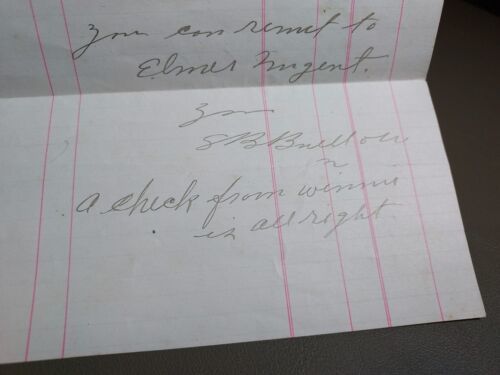 you can remit to
Elmer Nugent.
You
S B
a check from Winnie
is all right